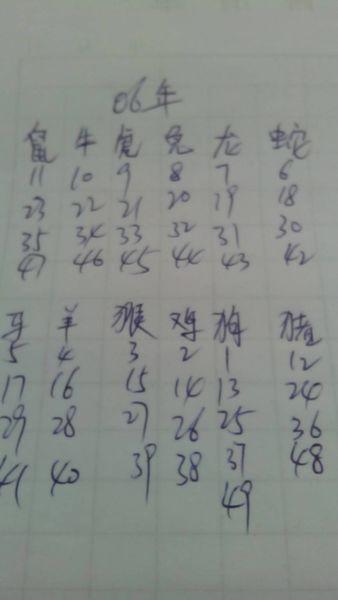 06年
鼠 牛 虎 兔 龙 蛇
11 10 9 8 7 6
23 22 21 20 19 18
35 34 33 32 31 30
47 46 45 44 43 42
马 羊 猴 鸡 狗 猪
5 4 3 2 1 12
17 16 15 14 13 24
29 28 27 26 25 36
41 40 39 38 37 48
49